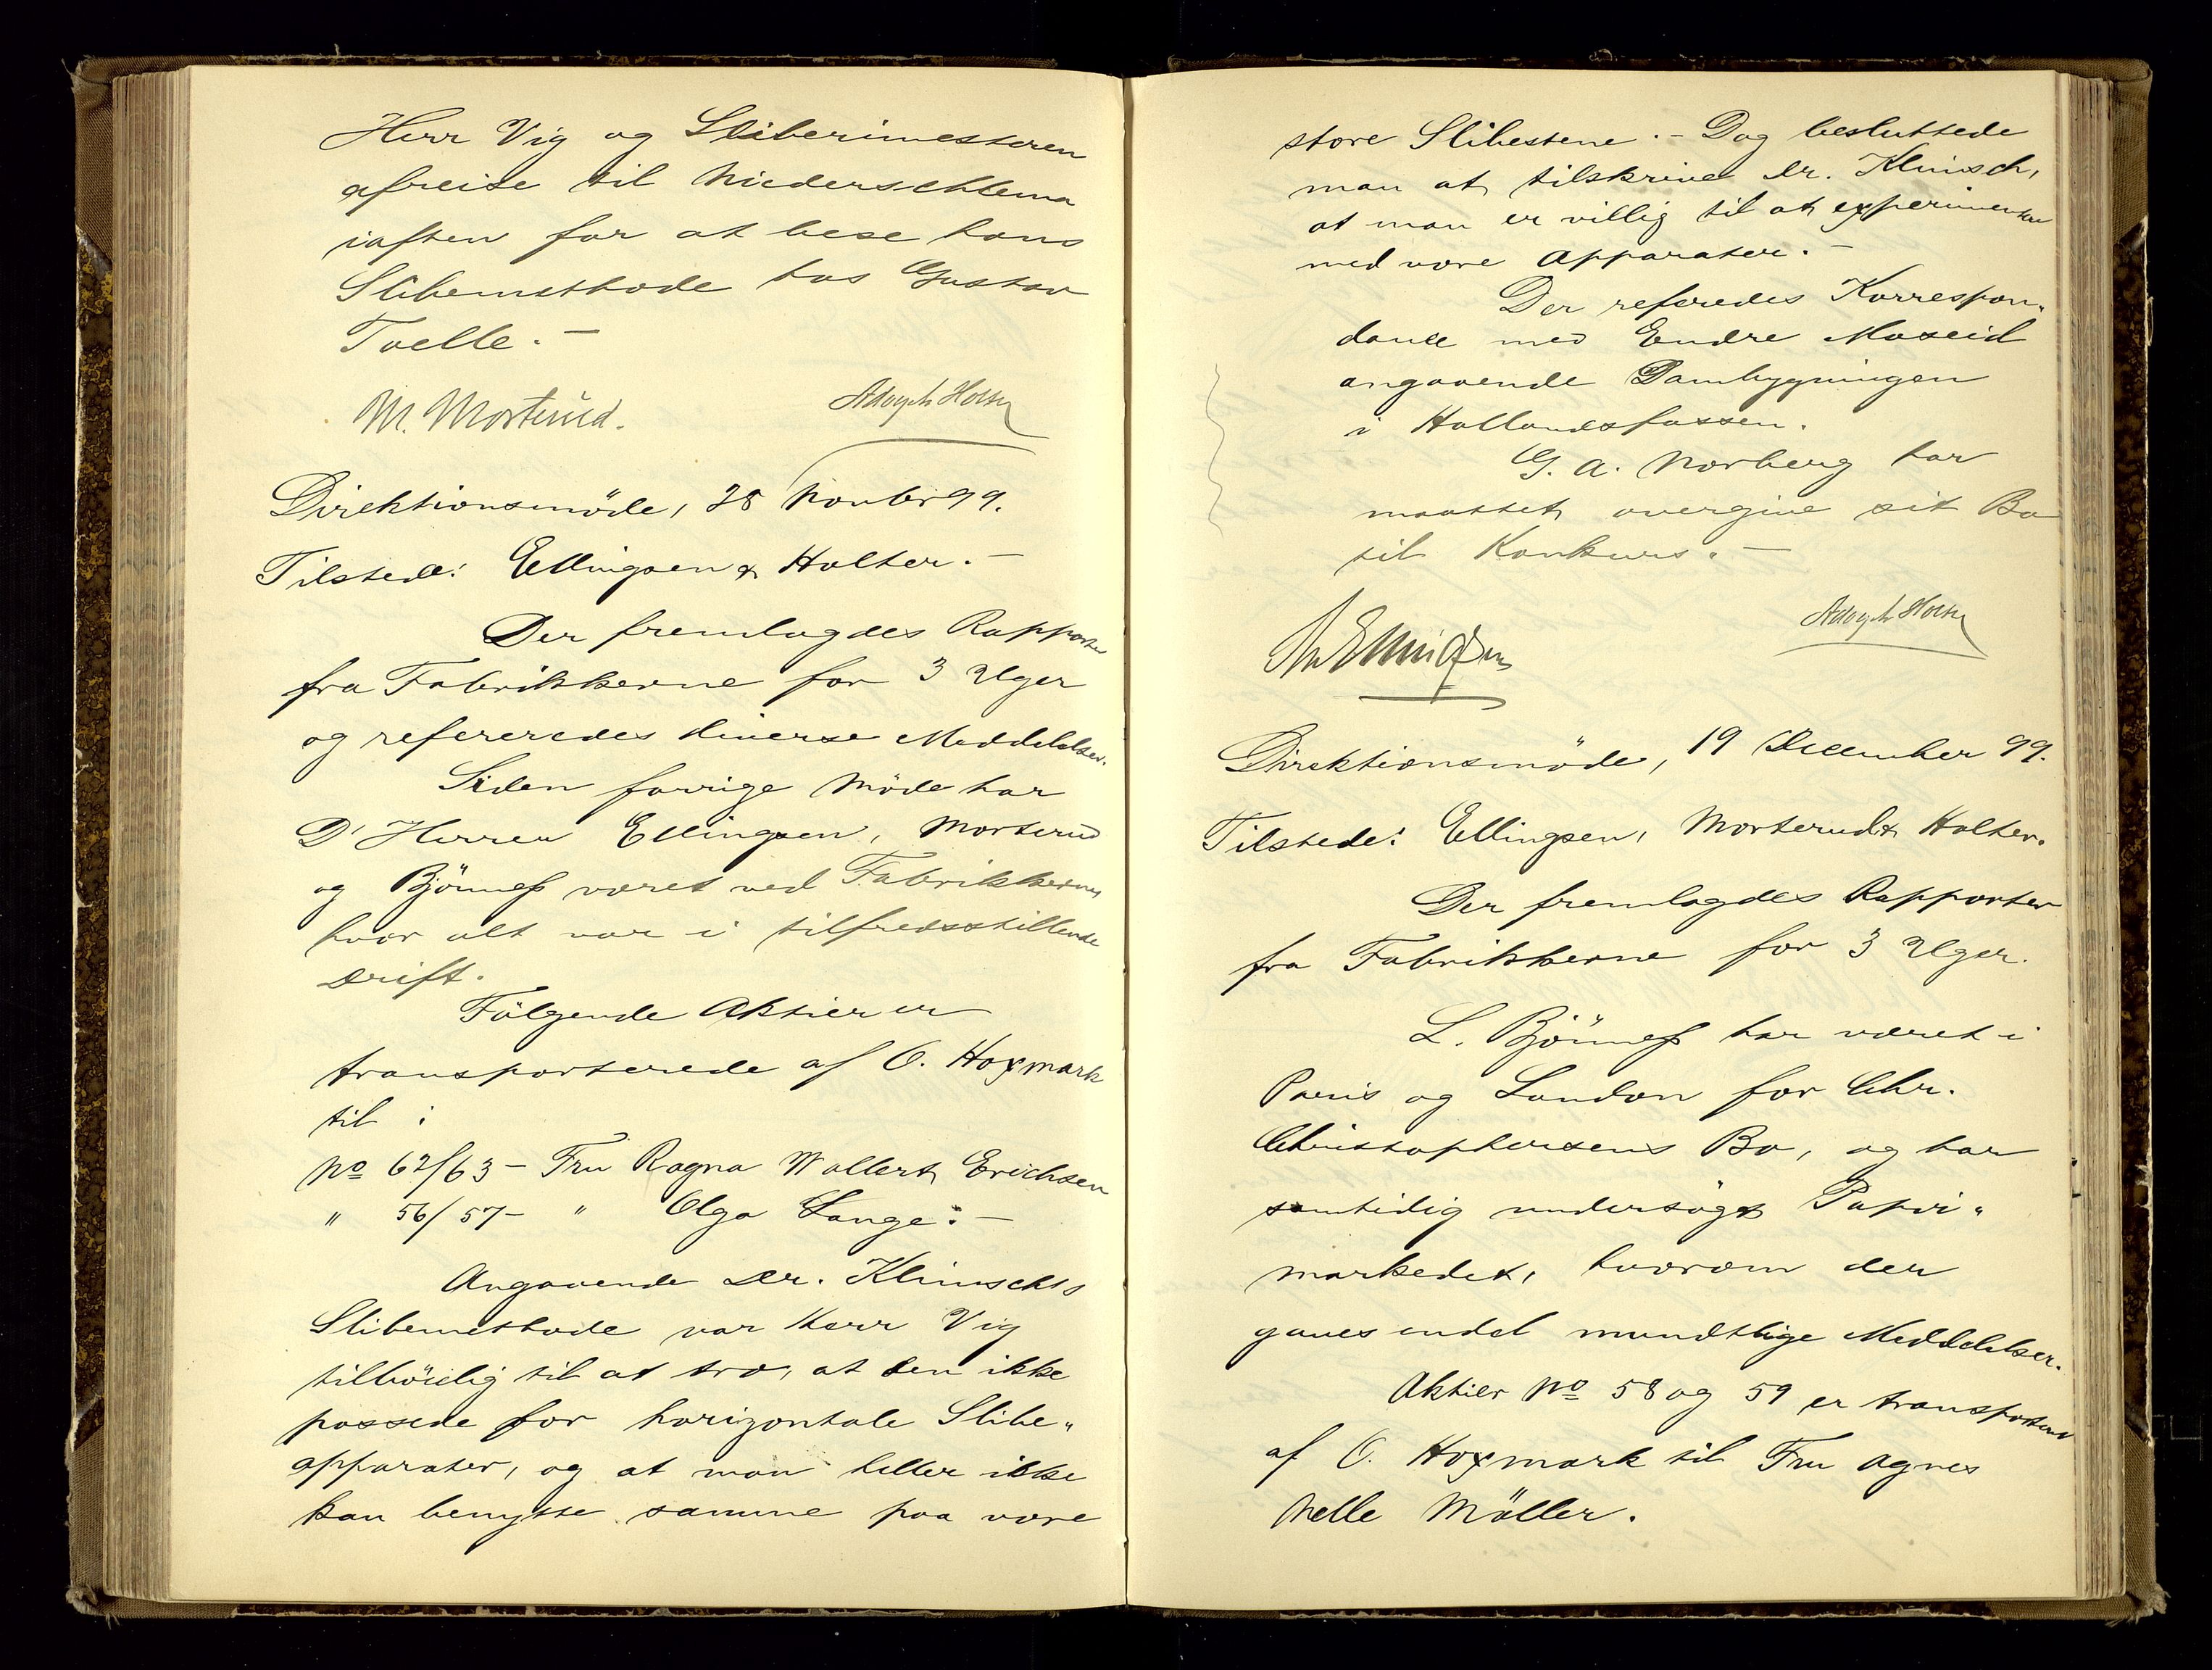 Herr Vig og Sliberimesteren
afreise til Niederschlema
iaften for at bese hans
Slibemethode hos Gustav
Toelle.—
M. Morterud. Adolph Holter
Direktionsmöde, 28 Novbr 99.
Tilstede: Ellingsen & Holter.—
Der fremlagdes Rapporter
fra Fabrikkerne for 3 Uger
og refereredes diverse Meddelelser.
Siden forrige Möde har
D'Herrer Ellingsen, Morterud
og Björness været ved Fabrikkerne,
hvor alt var i tilfredsstillende
Drift.
Fölgende Aktier er
transporterede af O. Hoxmark
til :
No 62/63 – Fru Ragna Wallert Erichsen
" 56/57 – " Olga Lange.—
Angaaende Dr. Klinschs
Slibemethode var Herr Vig
tilböielig til at tro, at den ikke
passede for horizontale Slibe-
apparater, og at man heller ikke
kan benytte samme paa vore
store Slibestene.– Dog besluttede
man at tilskrive Dr. Klinsch,
at man er villig til at experimentere
med vore Apparater.—
Der referedes Korrespon-
dance med Endre Moseid
angaaende Dambygningen
i Hallandsfossen.
G. A. Norberg har
maattet overgive sit Bo
til Konkurs.—
Ellingsen Adolph Holter
Direktionsmöde, 19 December 99.
Tilstede: Ellingsen, Morterud & Holter.
Der fremlagdes Rapporter
fra Fabrikkerne for 3 Uger.
L. Björness har været i
Paris og London for Chr.
Christophersens Bo, og har
samtidig undersögt Papir-
markedet, hvorom der
gaves endel mundtlige Meddelelser.
Aktier No 58 og 59 er transporteret
af O. Hoxmark til Fru Agnes
Nelle Möller.